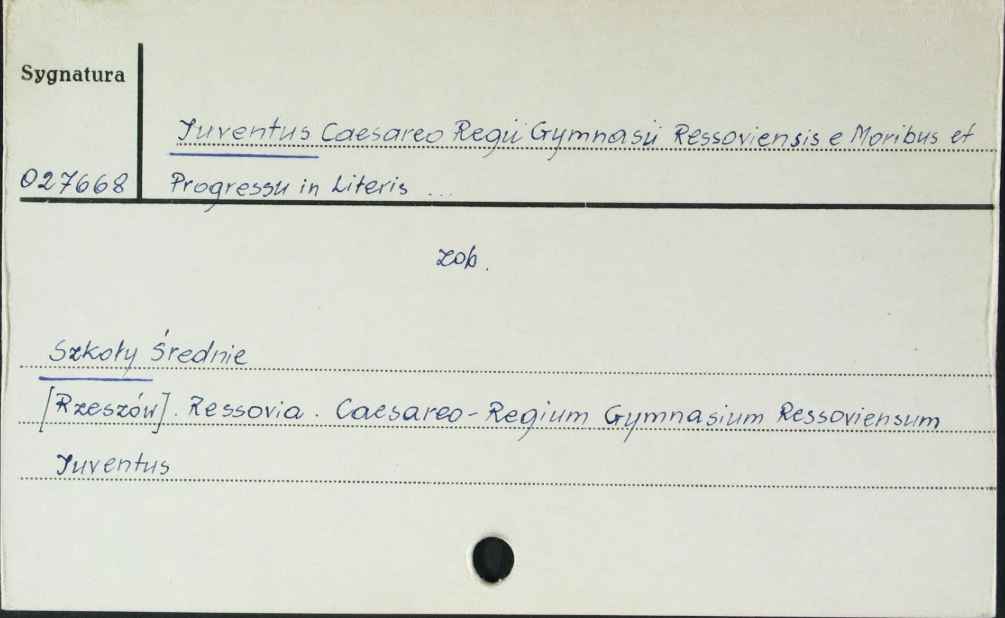 Sygnatura
Juventus Caesareo Regii Gymnasii Ressoviensis e Moribus et
027668 Progressu in Literis ...
zob.
Szkoły Średnie
[Rzeszów]. Ressovia. Caesareo-Regium Gymnasium Ressoviensum
Juventus